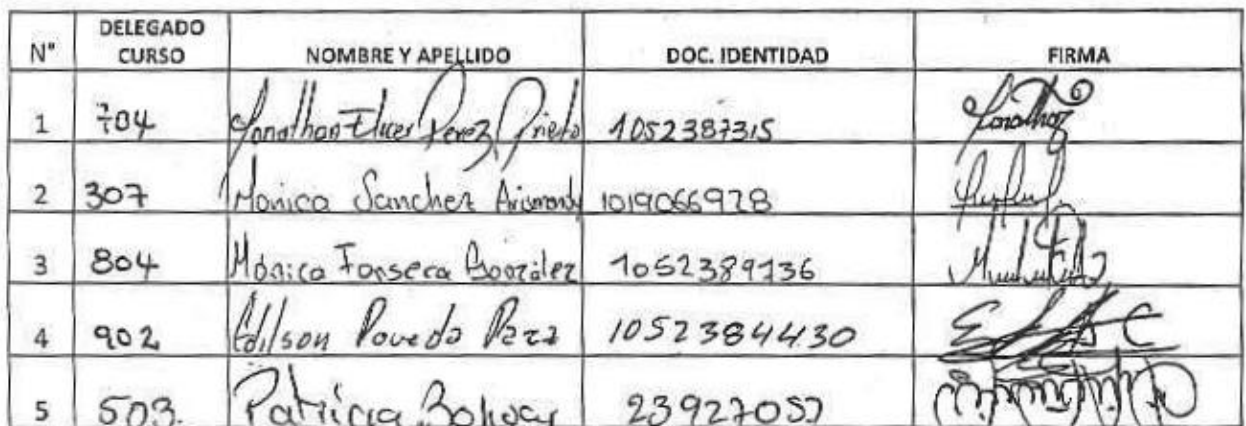 N° DELEGADO CURSO NOMBRE Y APELLIDO DOC. IDENTIDAD FIRMA
1 704 Jonathan Perez Prieto 1052387315 Jonathan
2 307 Monica Sanchez 1019066928
3 804 Mónica Fonseca González 1052389136
4 902 Edilson Poveda 1052384430
5 503. Patricia Bolivar 23927057